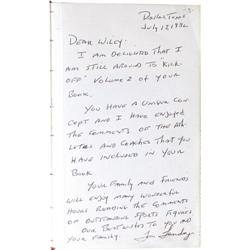 Dallas Texas
July 17, 1982
Dear Wiley:
I am delighted that I
am still around to kick
off Volume 2 of your
book.
You have a unique con-
cept and I have enjoyed
the comments of the ath-
letes and coaches that you
have included in your
book.
Your family and friends
will enjoy many wonderful
hours reading the comments
of outstanding sports figures
Our best wishes to you and
your family.
Tom Landry